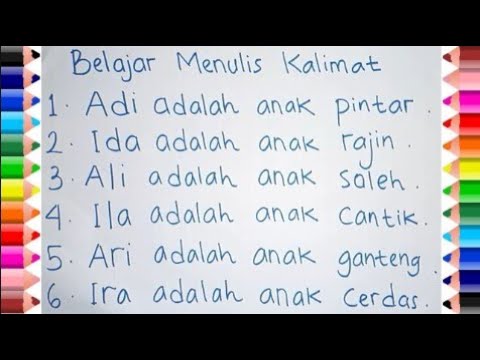 Belajar Menulis Kalimat
1. Adi adalah anak pintar.
2. Ida adalah anak rajin.
3. Ali adalah anak soleh.
4. Ila adalah anak cantik.
5. Ari adalah anak ganteng.
6. Ira adalah anak cerdas.